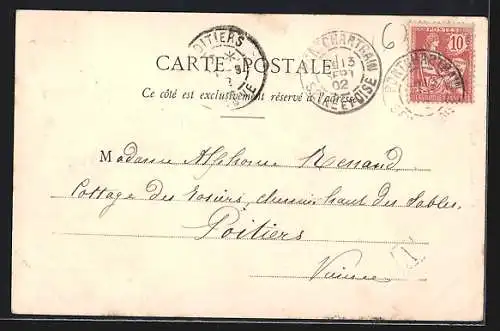 POITIERS
PONTCHARTRAIN
13
02
SEINE ET OISE
6
10
POSTES
PONTCHARTRAIN
CARTE POSTALE
Ce côté est exclusivement réservé à l'adresse
Madame Alphonse Renaud
Cottage des Rosiers, chemin haut des Sables,
Poitiers
Vienne